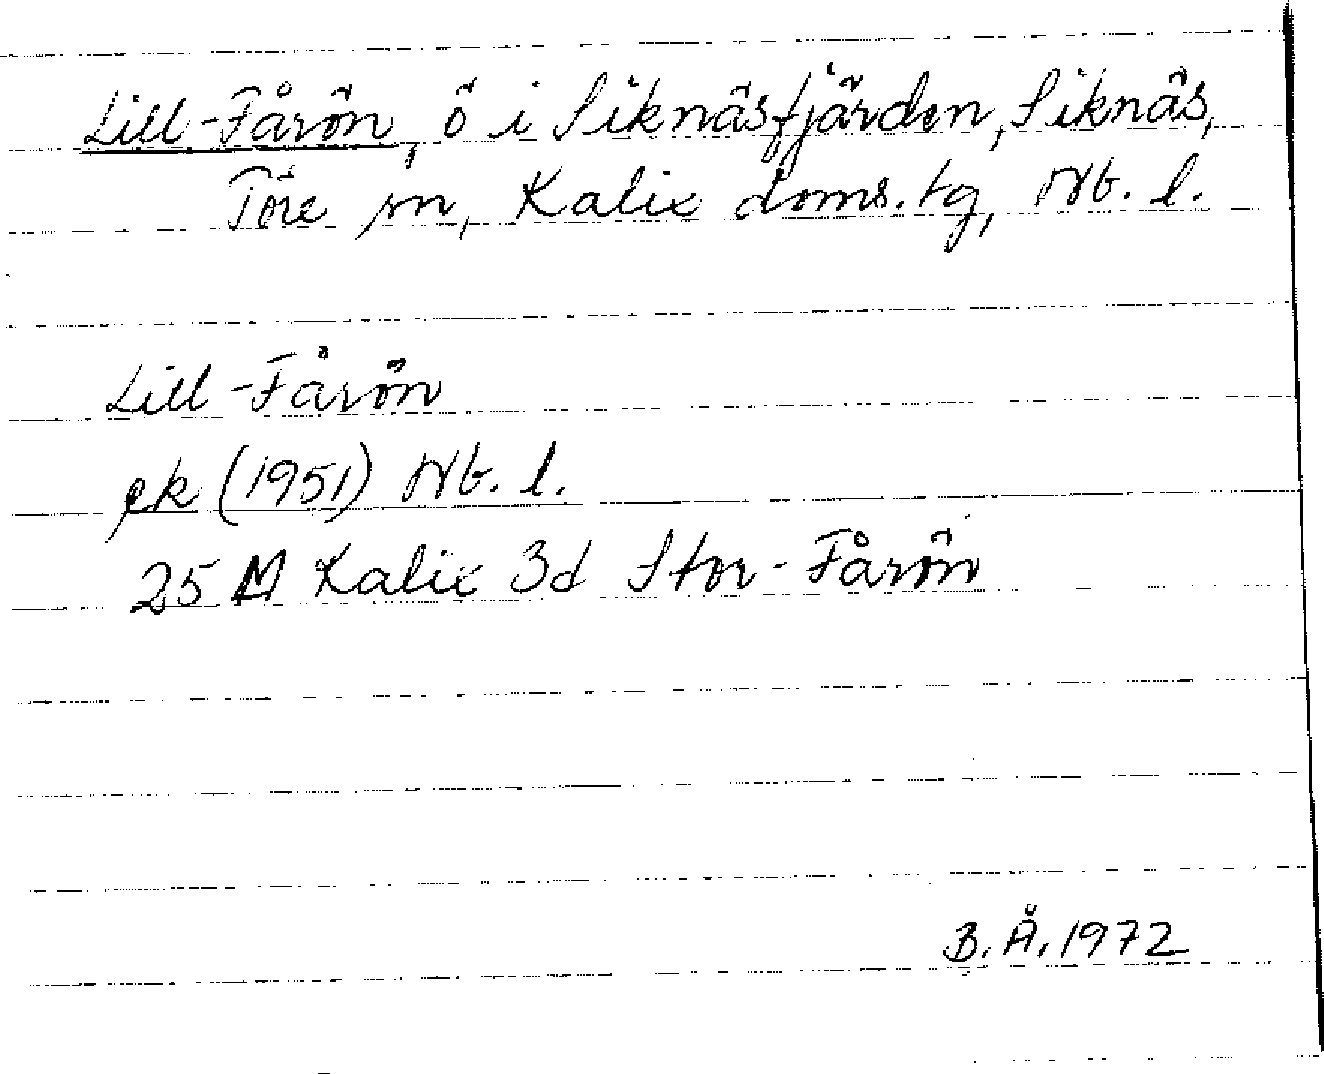 Lill-Fårön, ö i Siknäsfjärden, Siknäs,
Töre sn, Kalix doms.tg, Nb. l.
Lill-Fårön
ek (1951) Nb. l.
25 M Kalix 3d Stor-Fårön
B.Å. 1972